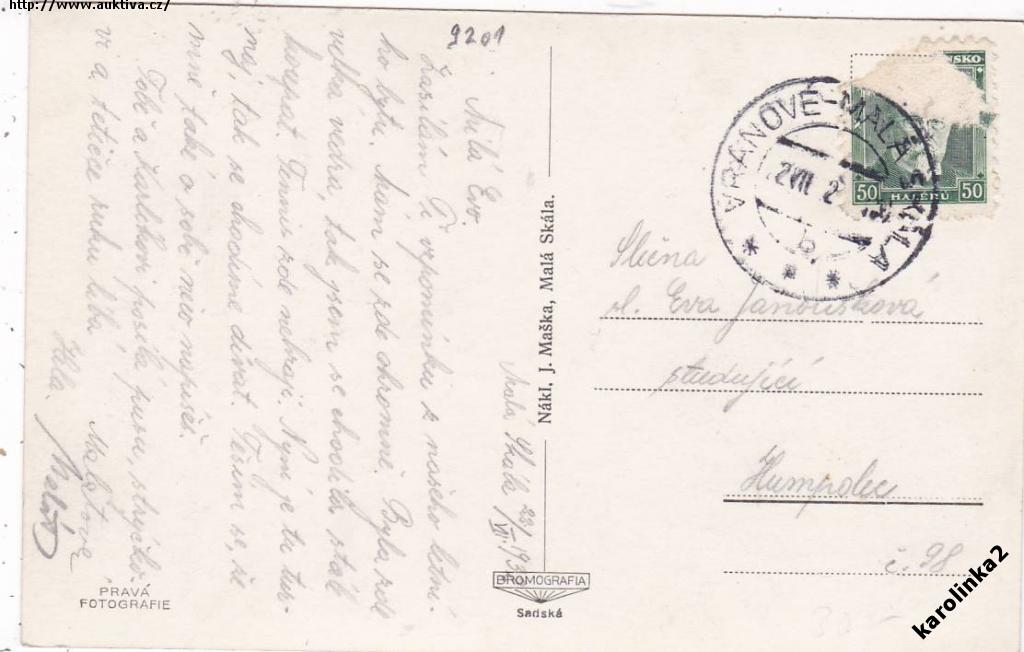 http://www.auktiva.cz/
9201
Milá Evo
Zasílám Ti vzpomínku z našeho letní-
ho bytu. Mám se zde ohromně. Byla zde
velká vedra, tak jsem se chodila stále
koupat. Tennis zde nehraji. Nyní je tu tur-
naj, tak se chodíme dívat. Těším se, že
mně také o sobě něco napíšeš.
Tobě a Karlíkovi posílá pusu, strýčko-
vi a tetičce ruku líbá
Hála.
Malátová
Malá Skála 23/VII. 193
Nákl, J. Maška, Malá Skála.
BROMOGRAFIA
Sadská
PRAVÁ
FOTOGRAFIE
VRANOVÉ-MALÁ SKÁLA
50 HALÉŘŮ 50
Slečna
sl. Eva Janoušková
studující
Humpolec
č. 98
karolinka2